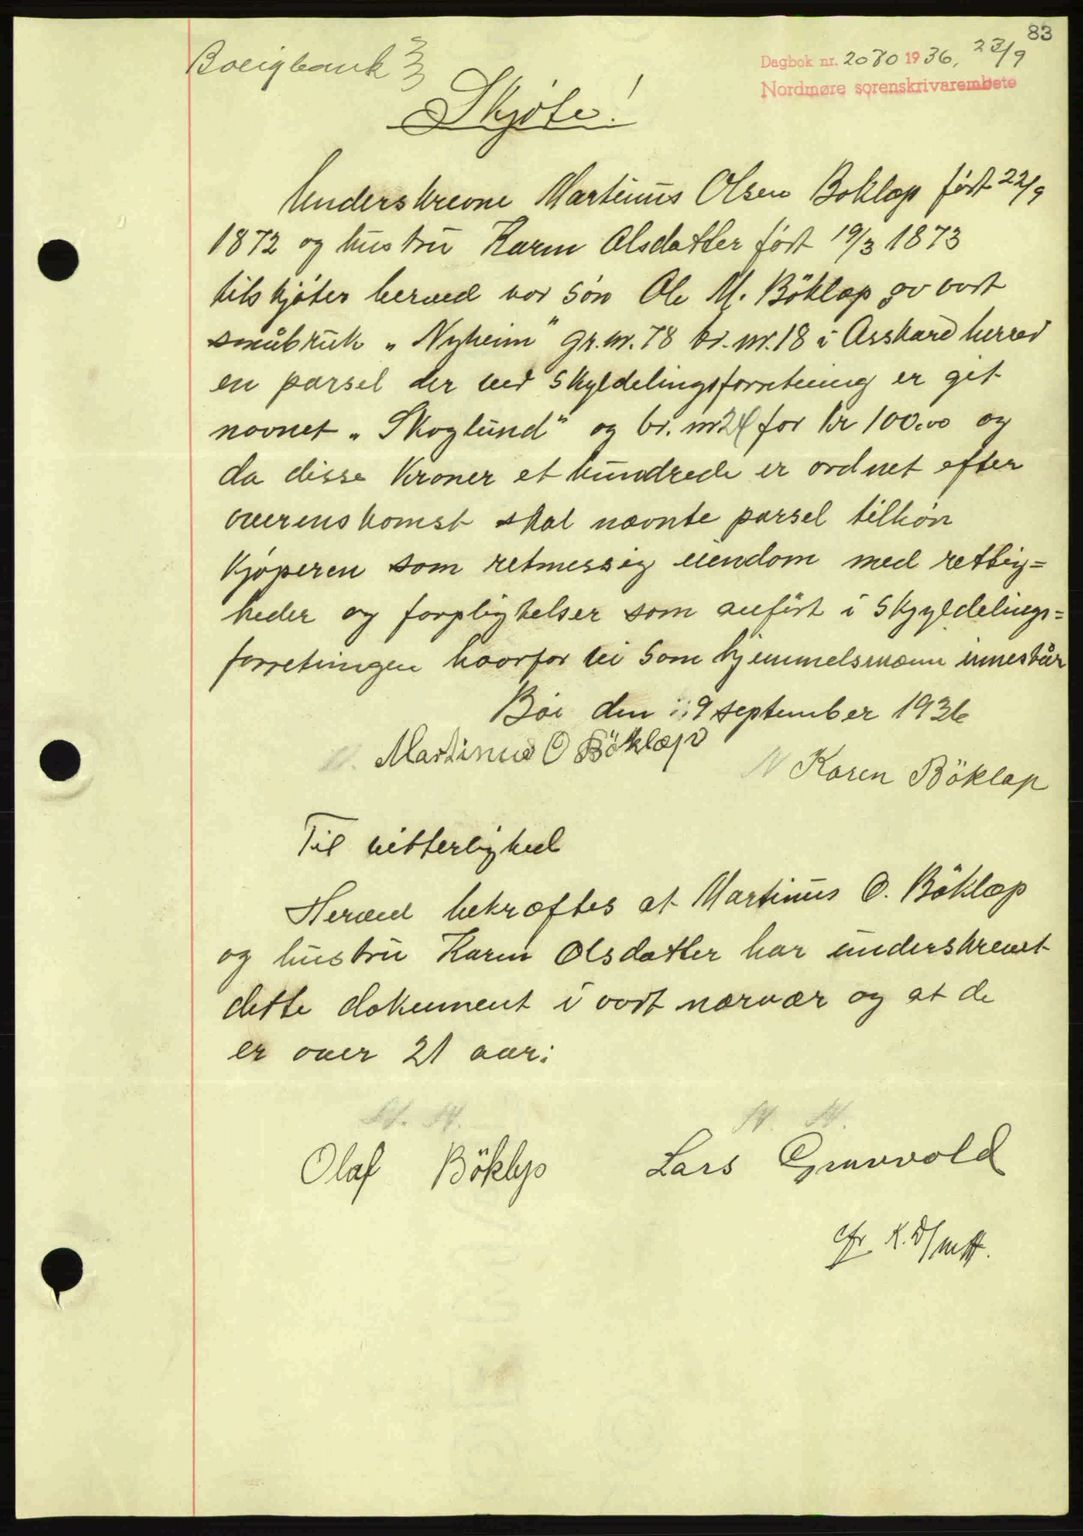 83
Boligbank
Dagbok nr. 2080 1936, 23/9
Nordmøre sorenskrivarembete
Skjøte!
Underskrevne Martinus Olsen Böklap født 22/9
1872 og hustru Karen Olsdatter født 19/3 1873
tilskjöter herved vor sön Ole M. Böklap av vort
småbruk „Nyheim" gr.nr. 78 br.nr. 18 i Asskard herred
en parsel der ved skyldelingsforretning er git
navnet „Skoglund" og br.nr 24 for kr 100.00 og
da disse kroner et hundrede er ordnet efter
overenskomst skal nævnte parsel tilhöre
kjöperen som retmessig eiendom med rettig=
heder og forpligtelser som anfört i skyldelings=
forretningen hvorfor vi som hjemmelsmænn innestår
Böe den 19 september 1936
Martinus O Böklap
Karen Böklap
Til vitterlighed
Herved bekræftes at Martinus O. Böklap
og hustru Karen Olsdatter har underskrevet
dette dokument i vort nærvær og at de
er over 21 aar:
Olaf Böklap Lars Grønvold